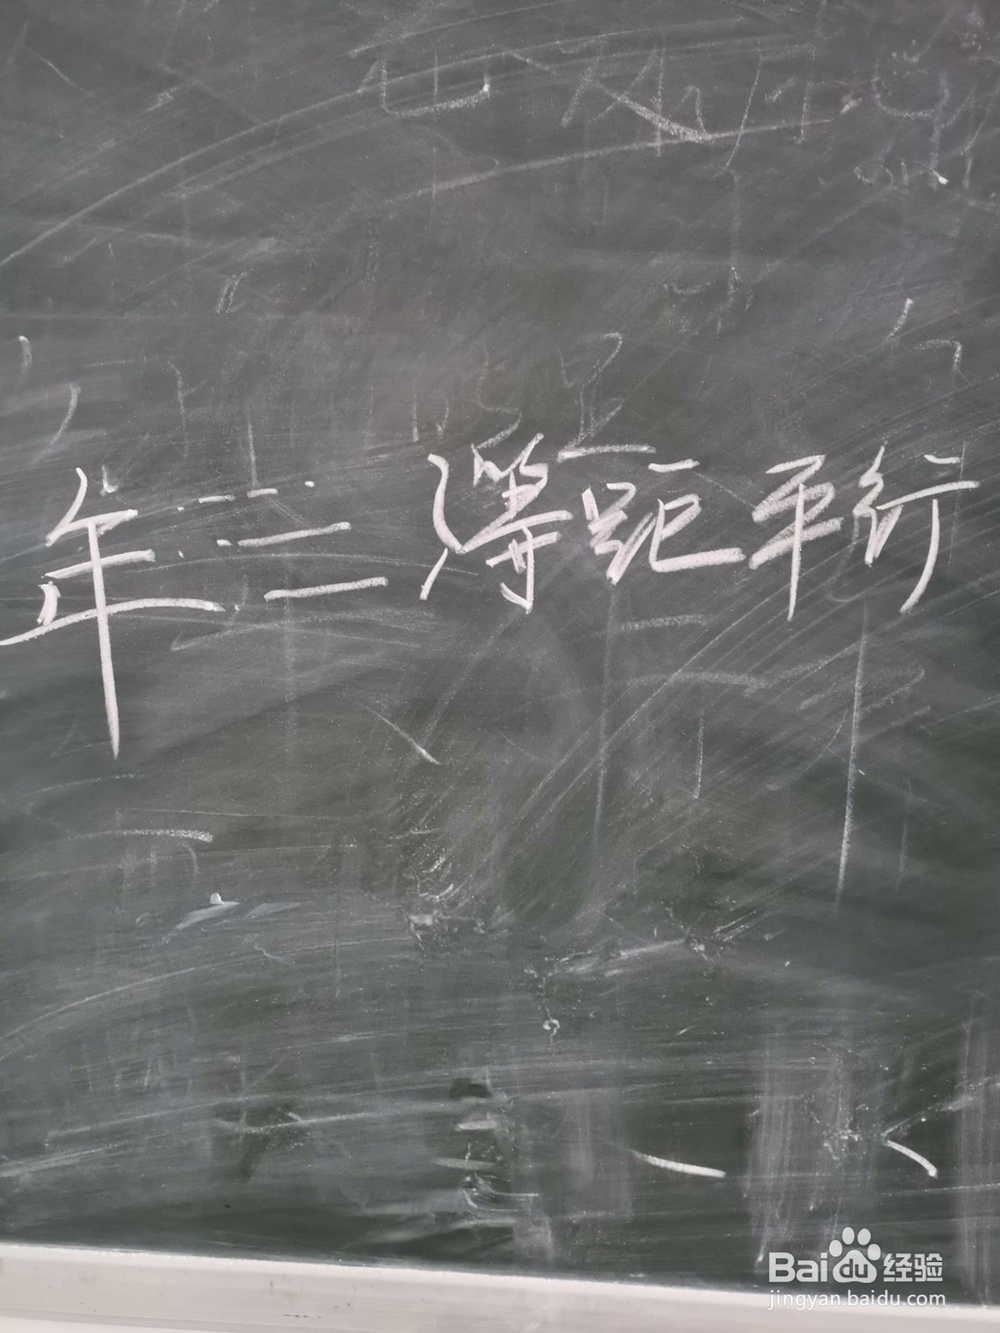 年三等距平行
Baidu经验
jingyan.baidu.com